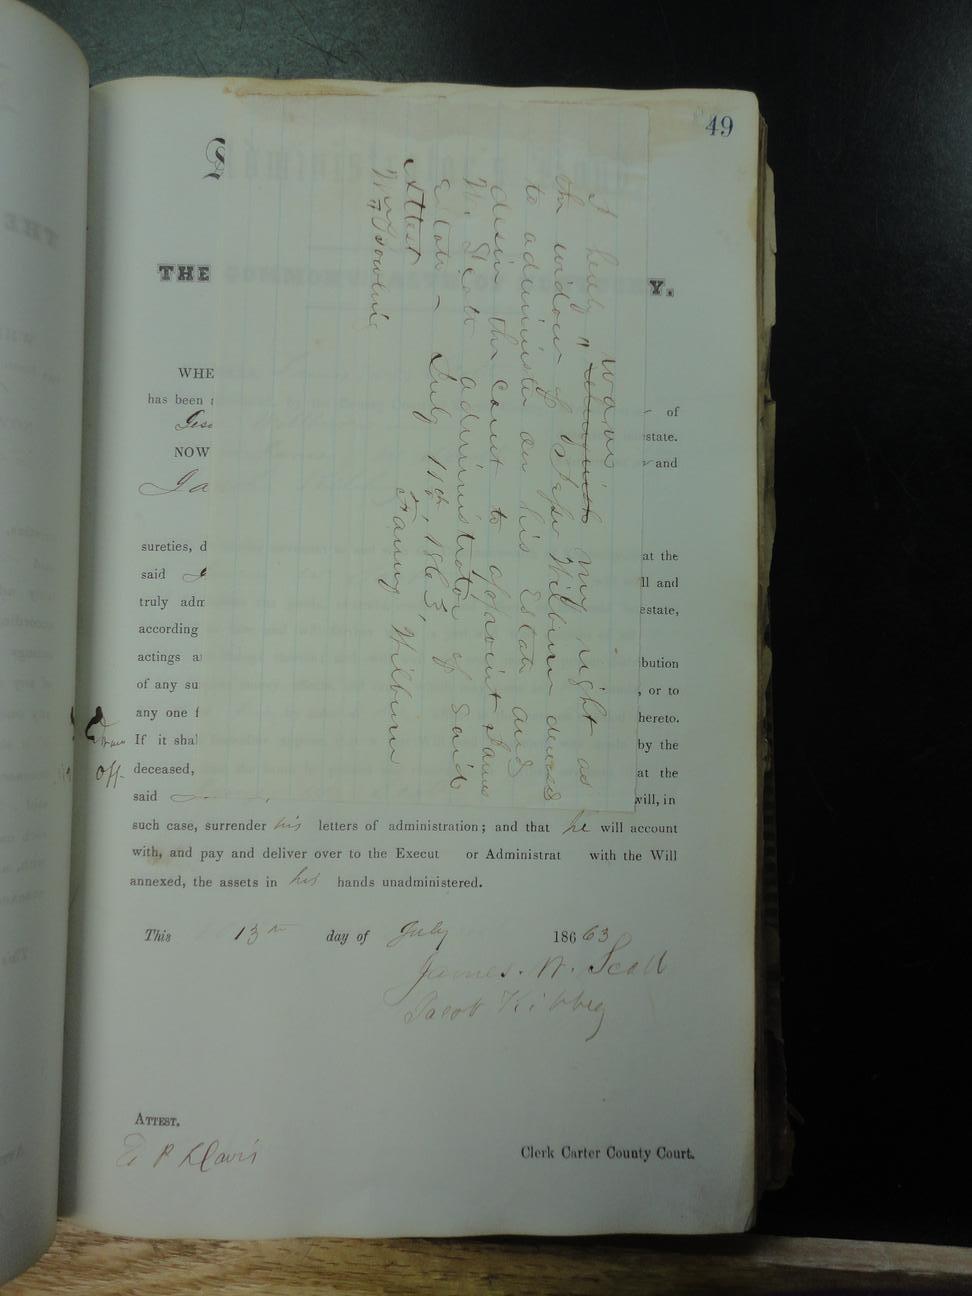 49
THE
Y.
WHE
has been
of
Jess
estate.
NOW
and
Ja
sureties, d
at the
said J
ll and
truly adm
estate,
according
actings a
bution
of any su
, or to
any one f
hereto.
If it shal
by the
deceased,
at the
said
will, in
such case, surrender his letters of administration; and that he will account
with, and pay and deliver over to the Execut or Administrat with the Will
annexed, the assets in his hands unadministered.
This 13th day of July 1863
James. W. Scott
Jacob Kibbey
ATTEST.
E P Davis
Clerk Carter County Court.
off
I herby waive
" relinquish my right as
the widow of Wilburn deceased
to administer on his Estate and
desire the Court to appoint James
W. Scott administrator of Said
Estate – July 11th, 1863,
Attest Fanny Wilburn